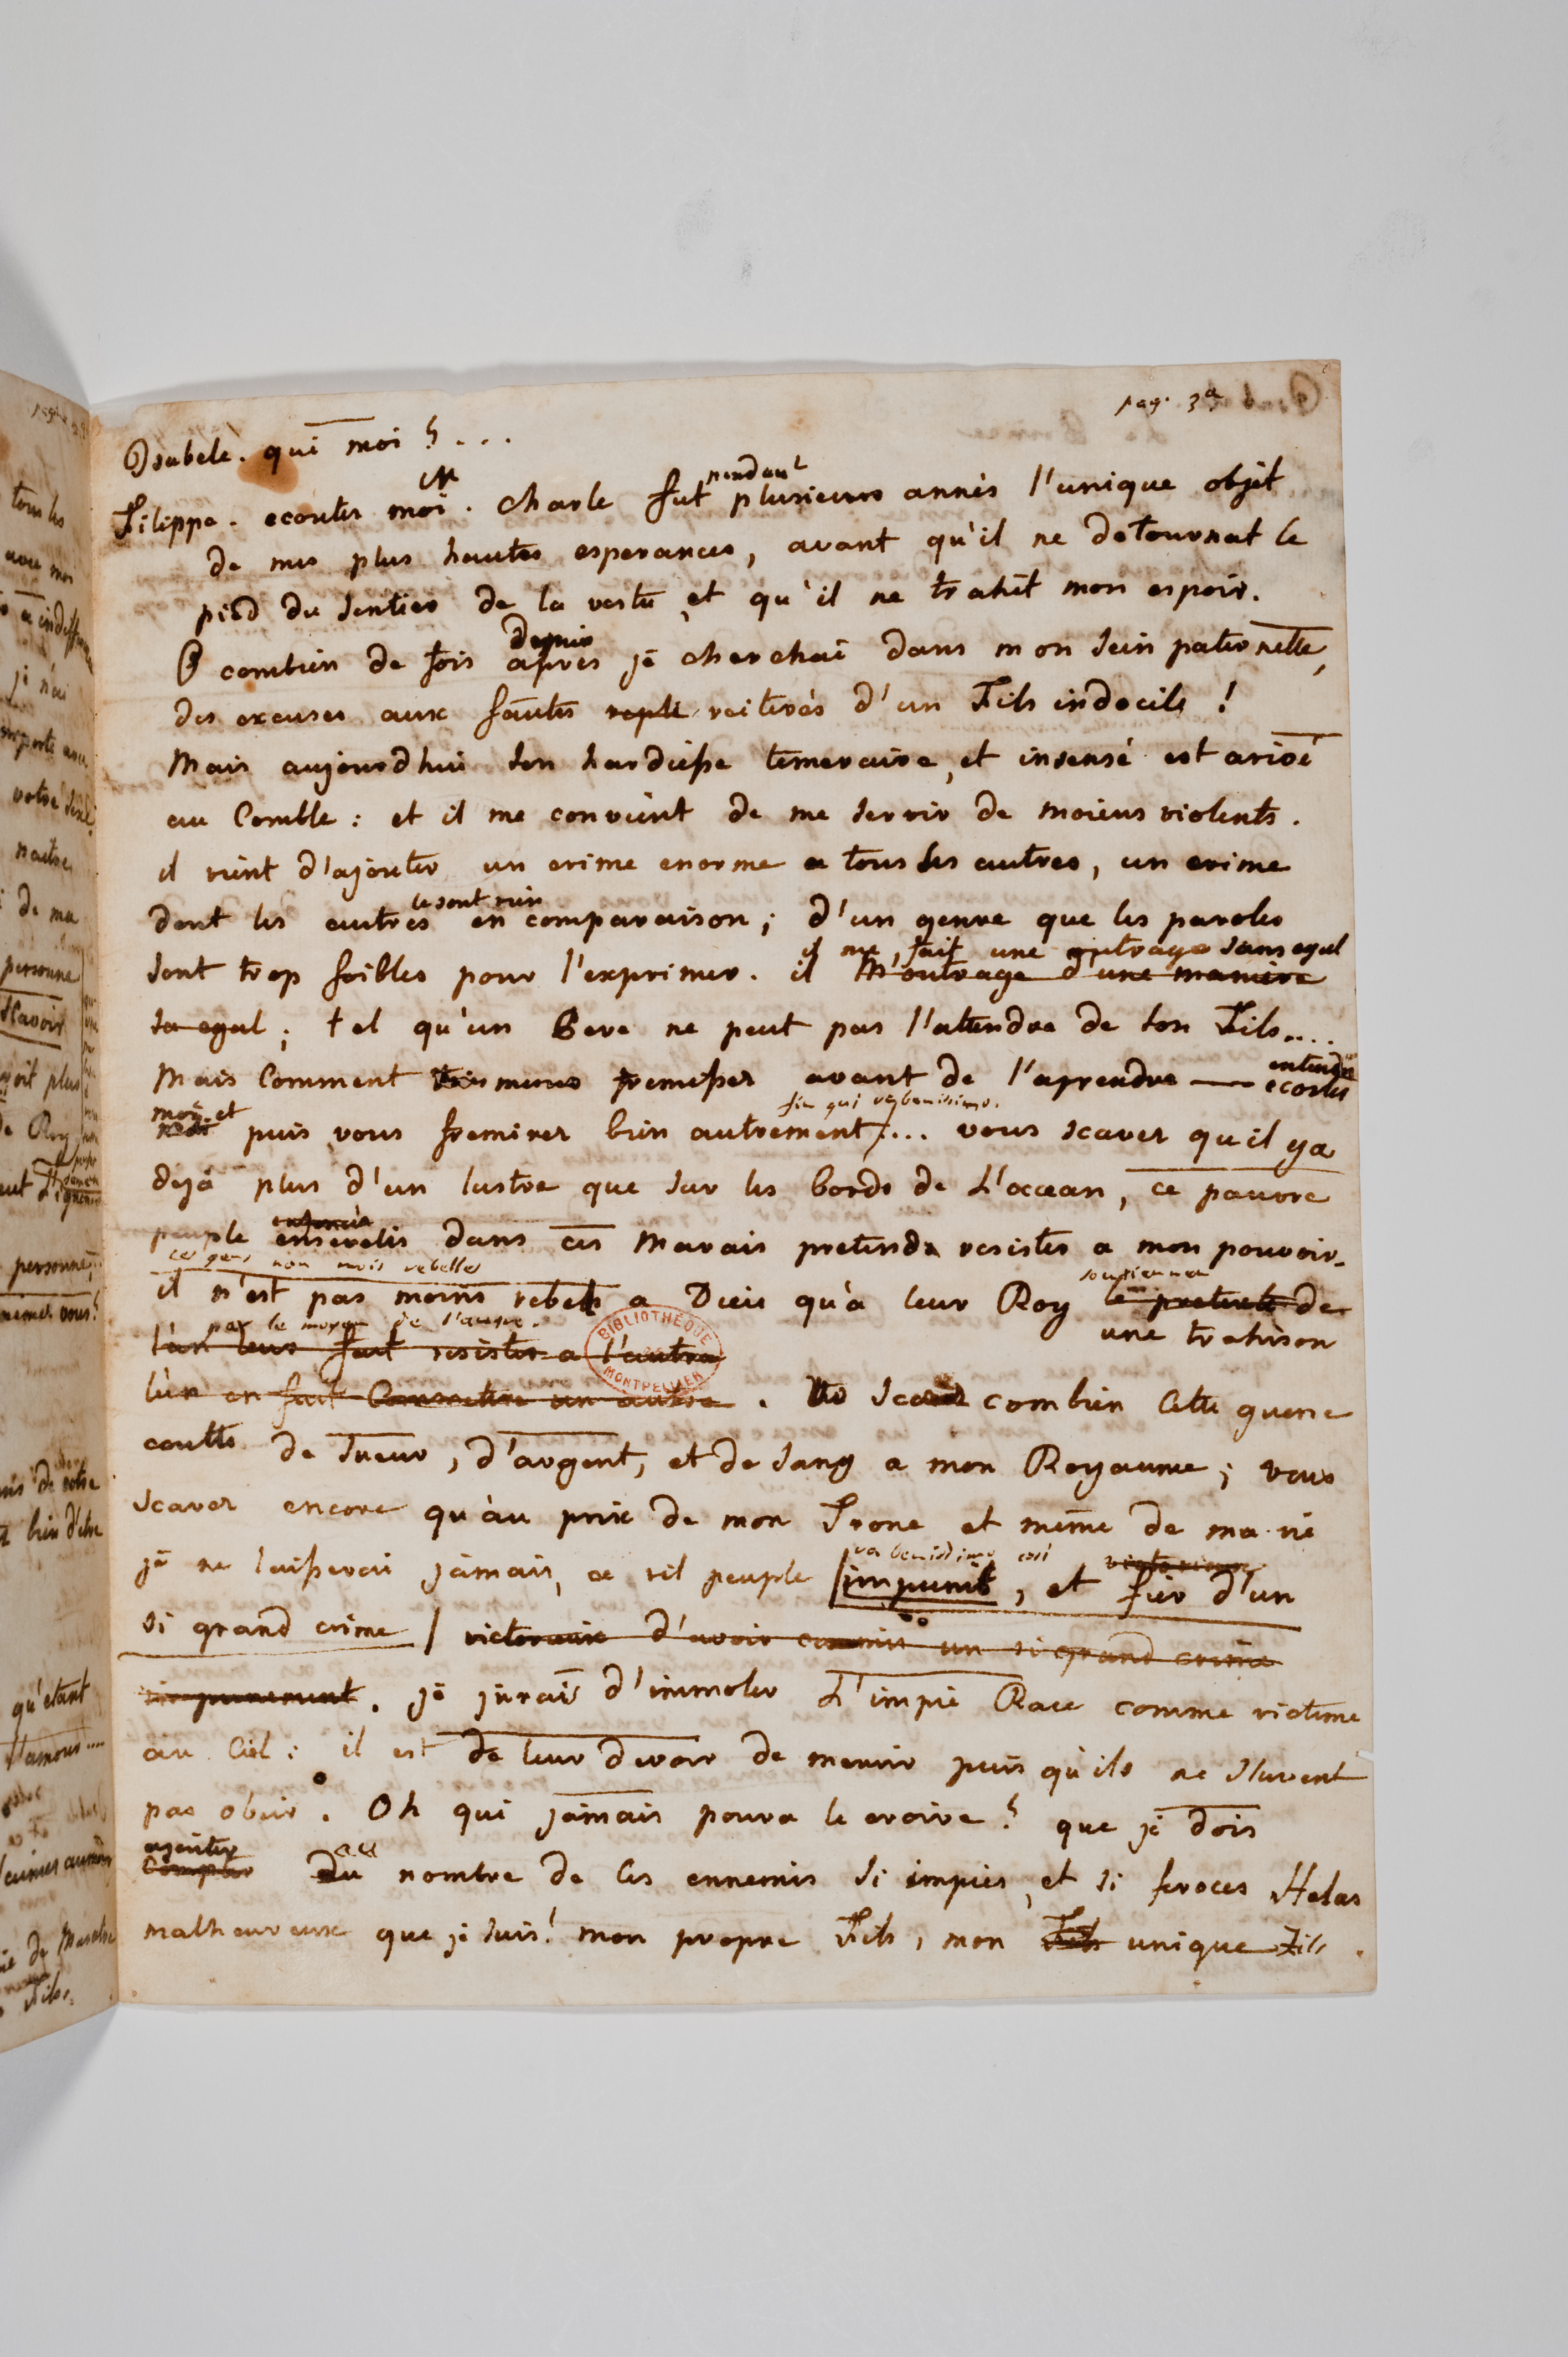 pag. 3ª
Isabele. qui moi ? . . .
Filippe. ecoutes moi. Charle fut pendant plusieurs annès l'unique objèt
de mes plus hautes esperances, avant qu'il ne detournat le
pied du sentier de la vertu, et qu'il ne trahit mon espoir.
O combien de fois depuis après je cherchai dans mon sein paternelle,
des excuses aux fautes reple reiterès d'un Fils indocile !
Mais aujourdhui son hardiesse temeraire, et insensé est arivé
au Comble : et il me convient de me servir de moiens violents.
il vient d'ajouter un crime enorme a tous les autres, un crime
dont les autres le sont rien en comparaison ; d'un genre que les paroles
il me fait une outrage sans egal
sont trop foibles pour l'exprimer. il m'outrage d'une maniere
sa egal ; tel qu'un Pere ne peut pas l'atendre de son Fils....
entendre
Mais Comment vous meme fremisses avant de l'aprendre — ecoutes
moi et puis vous fremires bien autrement.... vous scaves qu'il ya
fin qui va benissimo.
dejà plus d'un lustre que sur les bords de L'occean, ce pauvre
peuple enfoncès ensevelis dans ces Marais pretends resister a mon pouvoir.
ces gens non mois rebelles
soutienner
il n'est pas moins rebels a Dieu qu'à leur Roy le pretexte de
par le moyen de l'autre.
l'un leur fait resister a l'autre
une trahison
l'un en fait Commettre un autre. scaves combien Cette guerre
BIBLIOTHÈQUE MONTPELLIER
coutte de sueur, d'argent, et de sang a mon Royaume ; vous
scaves encore qu'àu prix de mon Trone et même de ma vie
va benissimo così
je ne laisserai jàmais, ce vil peuple impunit, et fier d'un
si grand crime / victorieux d'avoir commis un si grand crime
impunement. je jurais d'immoler L'impie Race comme victime
au Ciel : il est de leur devoir de mourir puis qu'ils ne scavent
pas obeir. Oh qui jàmais poura le croire ? que je dois
ajouter au
Compter du nombre de Ces ennemis si impies, et si feroces Helas
malheureux que je suis ! mon propre Fils, mon Fils unique Fils.